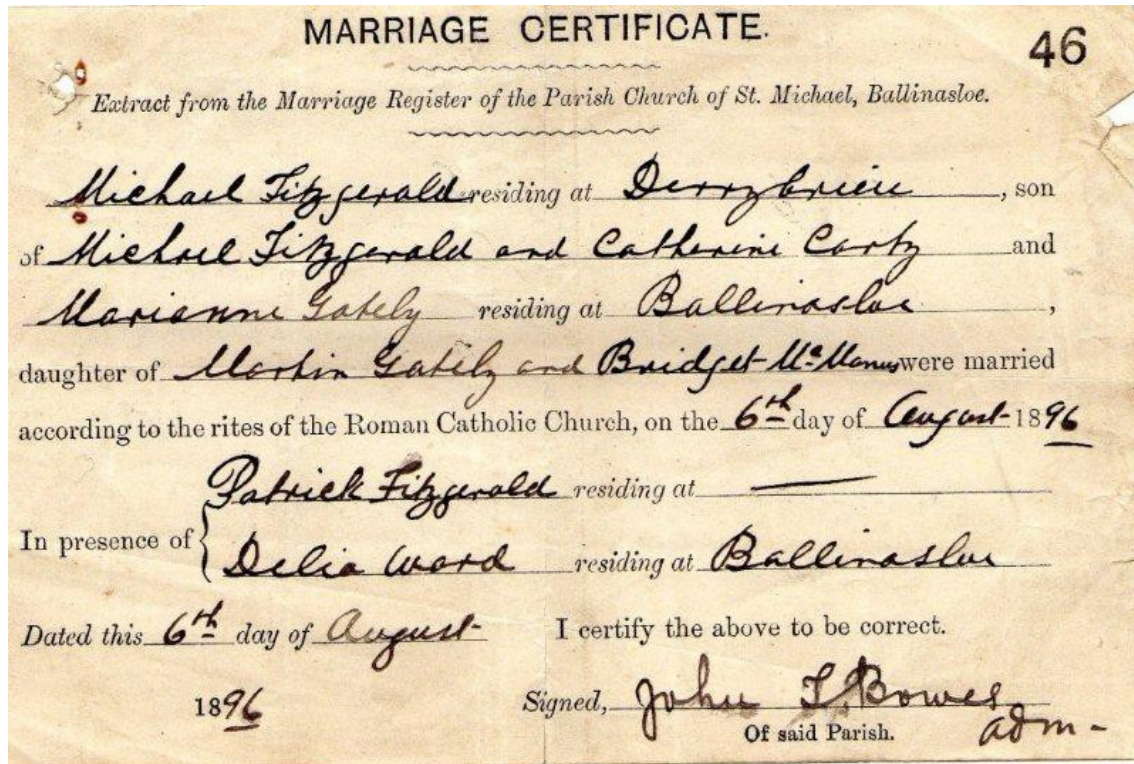 MARRIAGE CERTIFICATE.
46
Extract from the Marriage Register of the Parish Church of St. Michael, Ballinasloe.
Michael Fitzgerald residing at Derrybrien, son
of Michael Fitzgerald and Catherine Carty and
Marianne Gately residing at Ballinasloe,
daughter of Martin Gately and Bridget McManus were married
according to the rites of the Roman Catholic Church, on the 6th day of August 1896
Patrick Fitzgerald residing at —
In presence of
Delia Ward residing at Ballinasloe
Dated this 6th day of August
I certify the above to be correct.
1896
Signed, John T. Bowes
Of said Parish. adm-